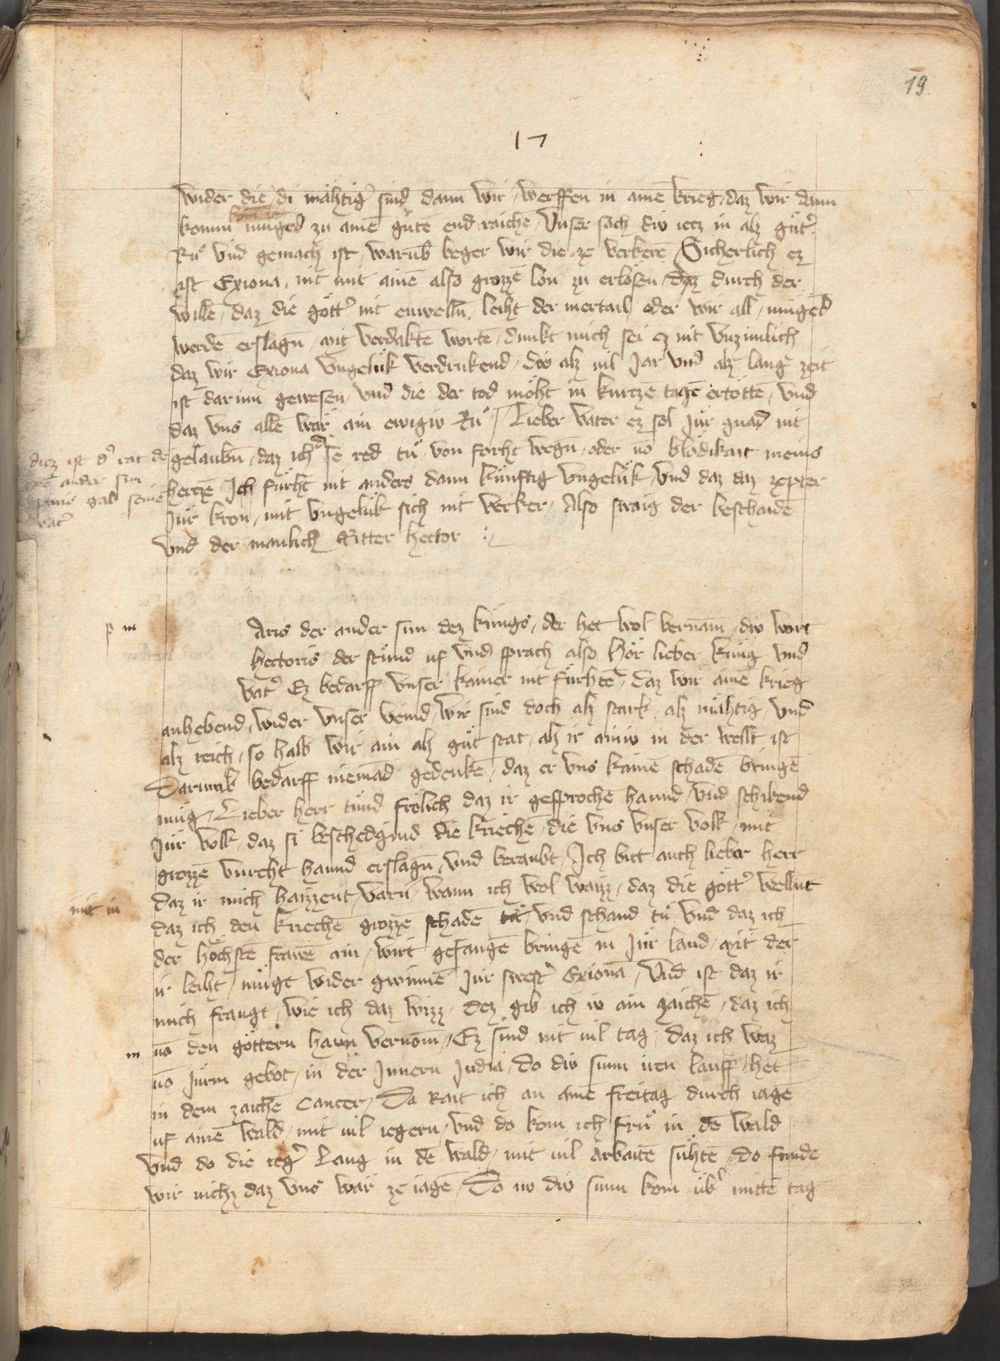 19
17
wider die di mähtig' sind dann wir / werffen in ainē krieg / daz wir dann
komm müged zu ainē gůtē end raichē / Unser sach div iecz in alz gůt'
Rů vnd gemach ist / warūb beger wir die ze verkerē / Sicherlich ez
ist Exiona / nit mit ainē also grozzē lon zu erlosen / daz durch der
willē / daz die gött' nit enwelln / leiht der mertail oder wir all / müged
werdē erslagn / mit verdaktē wortē / dunkt mich sei ez nit vnzimlich
daz wir Exiona vngelük verdrukend / div alz uil Jar vnd alz lange zeit
ist darinn gewesen / vnd die der tod möht in kurczē tagē ertöttē / vnd
daz vns allē wär ain ewigiv Rů / Lieber vater ez sol Jür gnad nit
gelaubn / daz ich dise red tů von forht wegn / oder uō blödikait meins
herczē Ich fürht nit anders dann künftig vngelük / vnd daz daz zepter
Jür kron / mit vngelük sich nit verker / Also swaig der beschaidē
vnd der manlich Ritter hector
dicz ist d' rat de
ander sun
gab seinē
vat'
p m
Aris der ander sun dez küngs / der het wol vernam / div wort
hectoris / der stůnd uf vnd sprach also Hör lieber küng vnd
vat' Ez bedarff vnser kainer nit fürhtē / daz wir ainē krieg
anhebend / wider vnser veind / wir sind doch alz stark alz mähtig / vnd
alz reich / so hab wir ain alz gůt stat / alz ir ainiv in der wellt ist
Darumb bedarff niemād gedenkē / daz er vns kainē schadē bringē
müg / Lieber herr tůnd frölich daz ir gesprochē hannd / vnd schikend
Jür volk / daz si beschedgind die kriechē / die vns vnser volk / mit
grozzē vnreht hannd erslagn / vnd beraubt / Ich bitt auch lieber herr
daz ir mich haizzent varn / wann ich wol waizz / daz die gött' wellnt
daz ich den kriechē grozzē schadē vnd schand tů vnd daz ich
mit in
der höchstē frawē ain / wirt gefangē bringē in Jür land / mit der
ir leiht / mügt wider gwinnē Jür swest' Exiona / Vnd ist daz ir
mich fraugt / wie ich daz wizz / dez gib ich iv ain zaichē / daz ich
uō den göttern hann vernōm / Ez sind nit uil tag / daz ich waz
uō Jürm gebot / in der Innern India / do div sunn iren lauff / het
in dem zaichē Cancer / Da Rait ich an ainē freitag durch iagē
uf ainē wald / mit uil iegern / vnd do kom ich frů in dē wald
vnd do die ieg' lang in dē wald / mit uil arbaitē sůhtē / do fundē
wir nichz daz vns wär ze iagē / Do nv div sunn kom üb' mittē tag